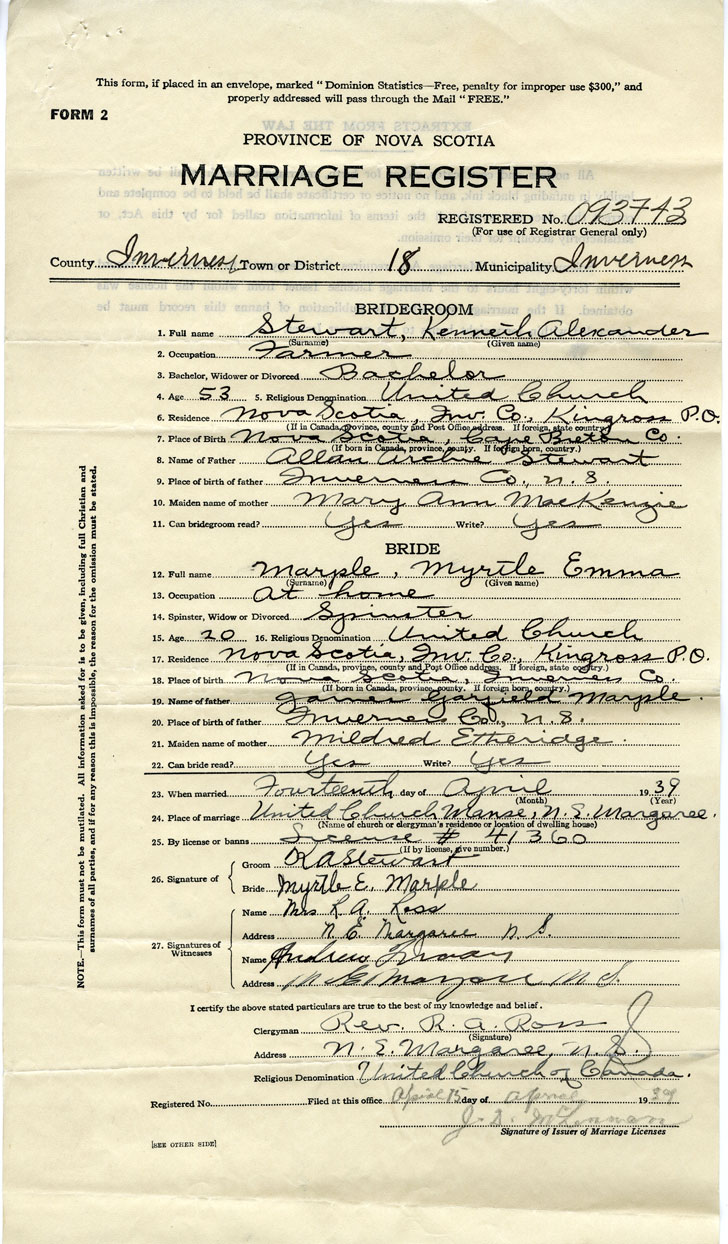 This form, if placed in an envelope, marked "Dominion Statistics—Free, penalty for improper use $300," and
properly addressed will pass through the Mail "FREE."
FORM 2
PROVINCE OF NOVA SCOTIA
MARRIAGE REGISTER
REGISTERED No. 093743
(For use of Registrar General only)
County Inverness Town or District 18 Municipality Inverness
BRIDEGROOM
1. Full name Stewart, Kenneth Alexander
(Surname) (Given name)
2. Occupation Farmer
3. Bachelor, Widower or Divorced Bachelor
4. Age 53 5. Religious Denomination United Church
6. Residence Nova Scotia, Inv. Co., Kingross P.O.
(If in Canada, Province, county and Post Office address. If foreign, state country.)
7. Place of Birth Nova Scotia, Cape Breton Co.
(If born in Canada, province, county. If foreign born, country.)
8. Name of Father Allan Archie Stewart
9. Place of birth of father Inverness Co., N.S.
10. Maiden name of mother Mary Ann MacKenzie
11. Can bridegroom read? Yes Write? Yes
BRIDE
12. Full name Marple, Myrtle Emma
(Surname) (Given name)
13. Occupation At home
14. Spinster, Widow or Divorced Spinster
15. Age 20 16. Religious Denomination United Church
17. Residence Nova Scotia, Inv. Co., Kingross P.O.
(If in Canada, province, county and Post Office address. If foreign, state country.)
18. Place of birth Nova Scotia, Inverness Co.
(If born in Canada, province, county. If foreign born, country.)
19. Name of father James Garfield Marple.
20. Place of birth of father Inverness Co., N.S.
21. Maiden name of mother Mildred Etheridge.
22. Can bride read? Yes Write? Yes
23. When married Fourteenth day of April 1939
(Month) (Year)
24. Place of marriage United Church Manse, N.E. Margaree.
(Name of church or clergyman's residence or location of dwelling house)
25. By license or banns License # 41360
(If by license, give number.)
26. Signature of
Groom K A Stewart
Bride Myrtle E. Marple
27. Signatures of Witnesses
Name Mrs R.A. Ross
Address N.E. Margaree N.S.
Name Andrew
Address N E Margaree N S.
I certify the above stated particulars are true to the best of my knowledge and belief.
Clergyman Rev. R. A. Ross
(Signature)
Address N.E. Margaree, N.S.
Religious Denomination United Church of Canada.
Registered No. Filed at this office April 15 day of April 1939
Signature of Issuer of Marriage Licenses
[SEE OTHER SIDE]
NOTE.—This form must not be mutilated. All information asked for is to be given, including full Christian and
surnames of all parties, and if for any reason this is impossible, the reason for the omission must be stated.